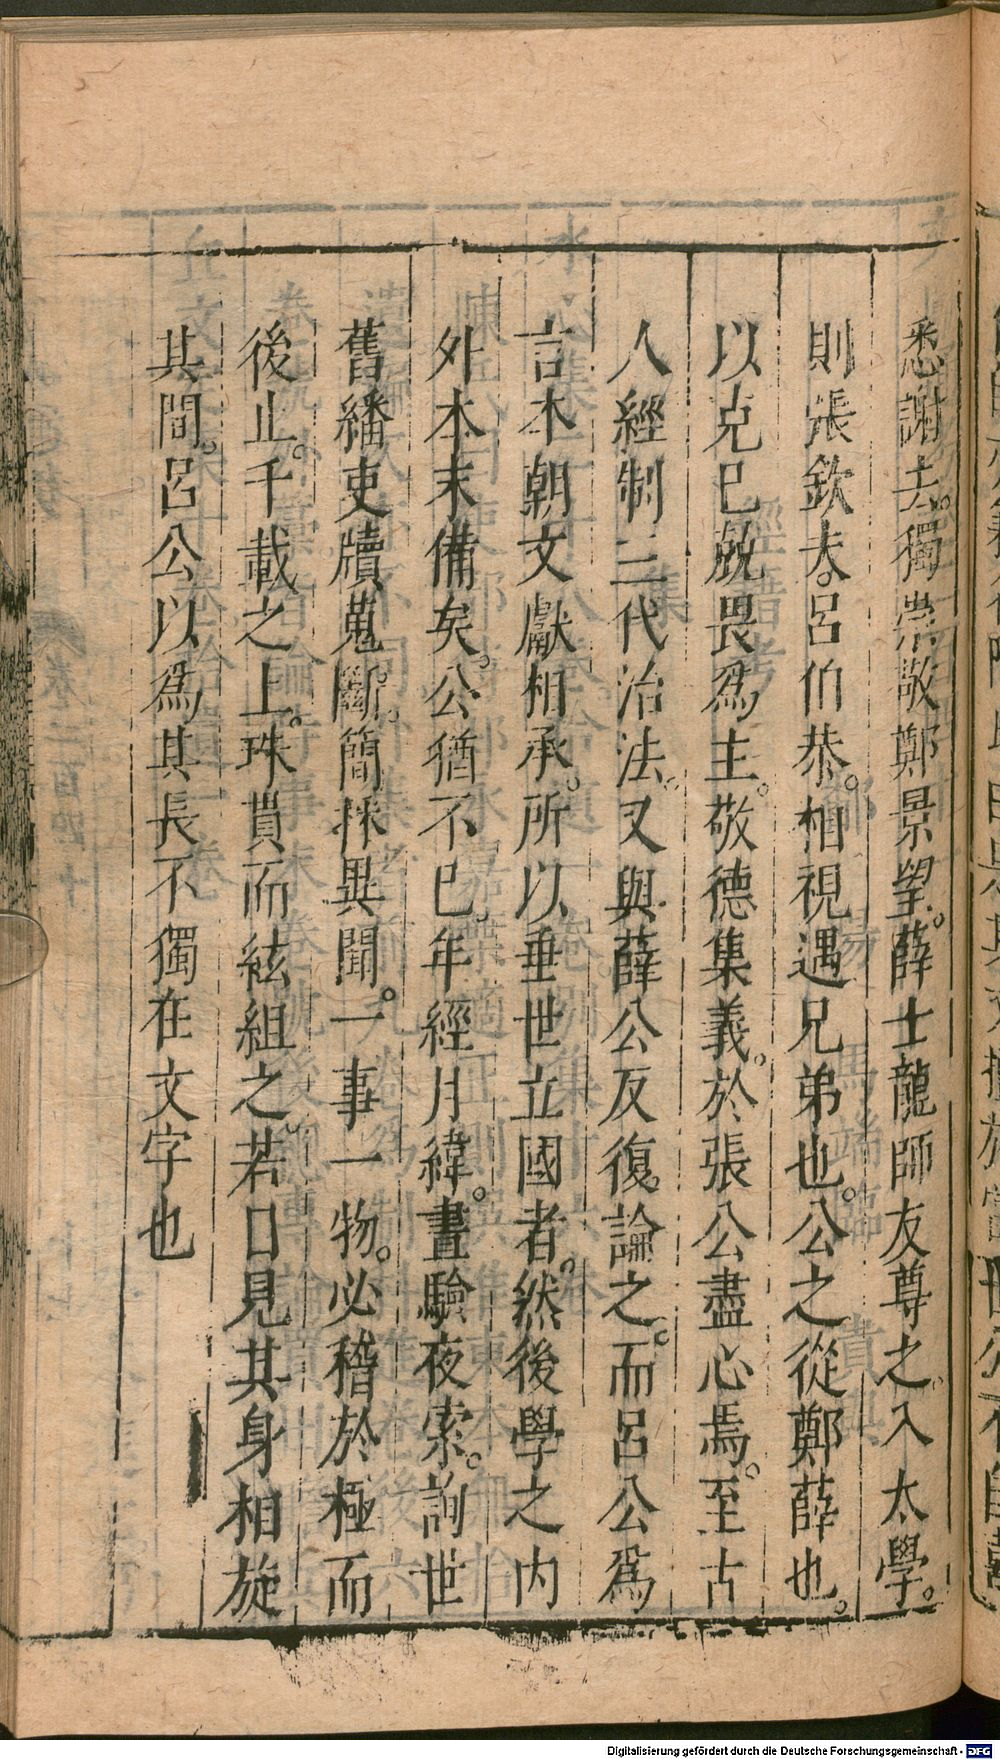 悉謝去。獨崇敬鄭景望。薛士龍師友尊之。入太學。
則張欽夫。呂伯恭。相視遇兄弟也。公之從鄭薛也。
以克己兢畏爲主。敬德集義。於張公盡心焉。至古
人經制三代治法。又與薛公反復論之。而呂公爲
言本朝文獻相承。所以垂世立國者。然後學之內
外本末備矣。公猶不已。年經月緯。晝驗夜索。詢世
舊繙吏牘蒐斷。簡採異聞。一事一物。必稽於極而
後止。千載之上。珠貫而絃組之。若目見其身相旋
其間。呂公以爲其長不獨在文字也
Digitalisierung gefördert durch die Deutsche Forschungsgemeinschaft - DFG